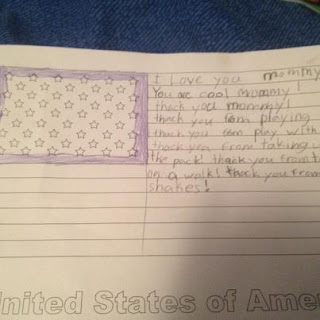 I love you mommy
You are cool mommy!
thack you mommy!
thack you rom playing
thack you rom play with
thack you from taking u
the pack! thack you from t
on a walk! thack you from
shakes!
United States of Amer